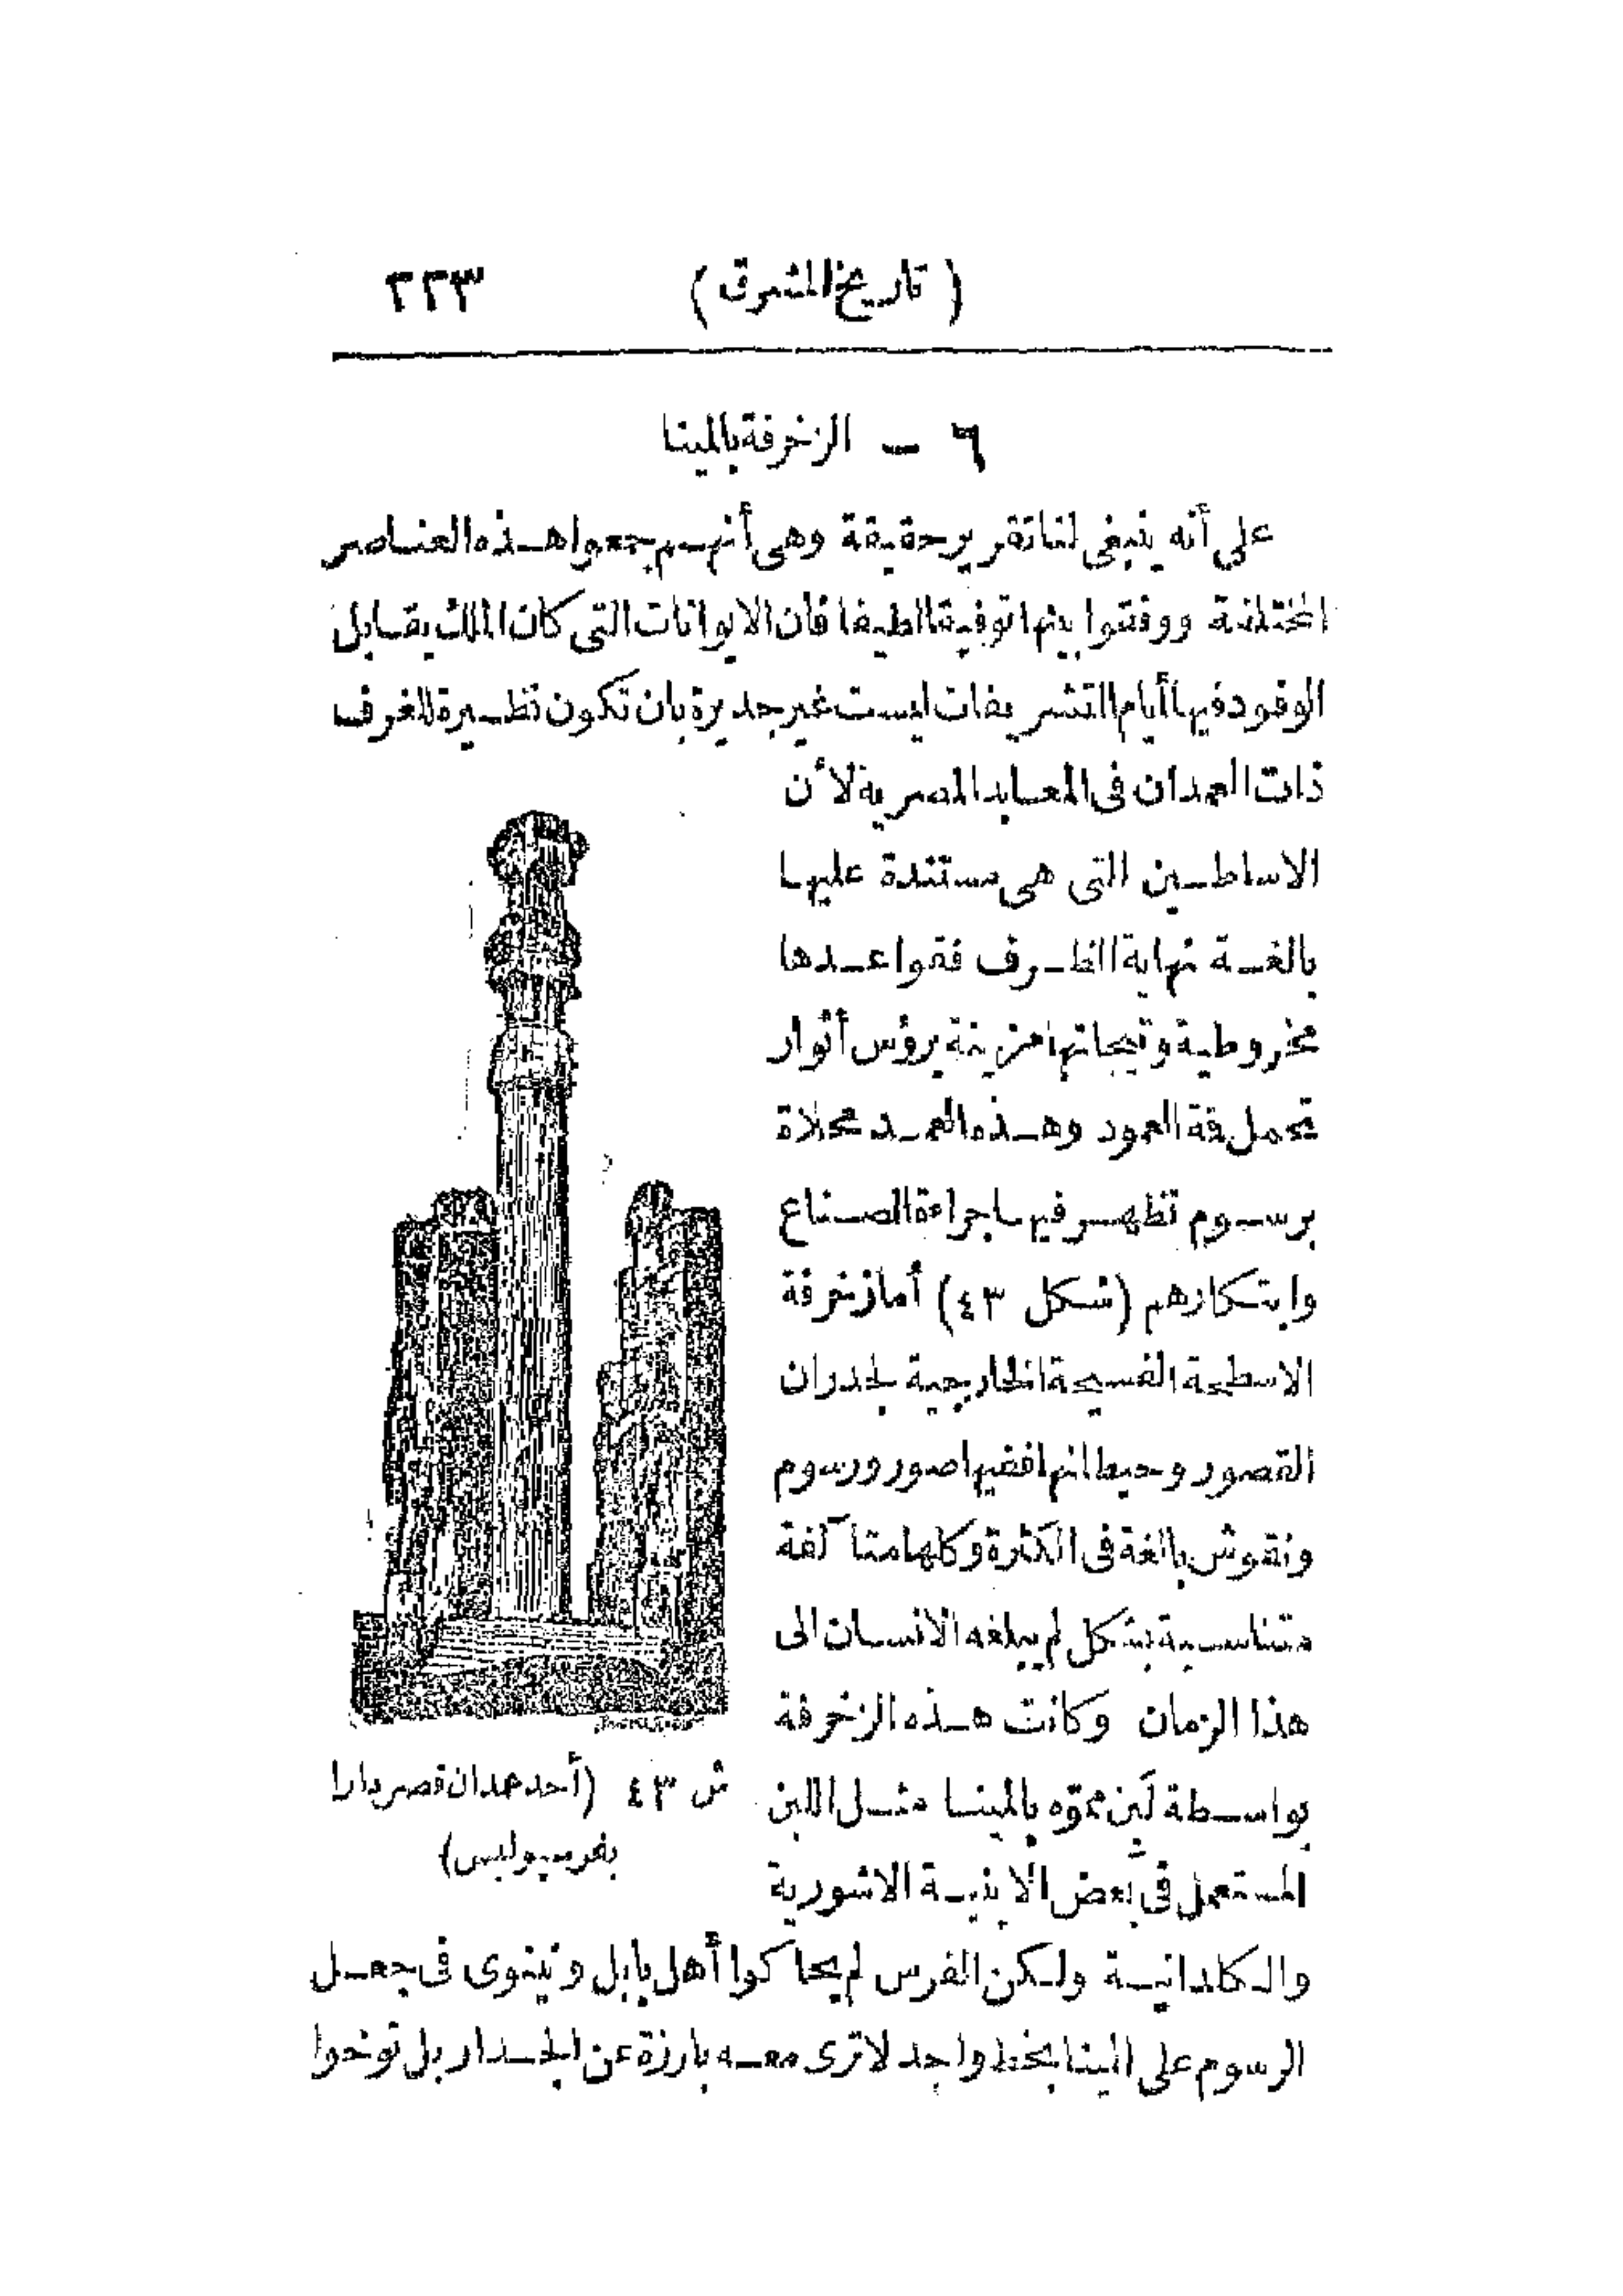 (تاريخ المشرق) ٢٢٣
٦ ــ الزخرفة بالمينا
على أنه ينبغى لنا تقرير حقيقة وهى أنهم جمعوا هذه العناصر
المختلفة ووفقوا بينها توفيقا لطيفا فان الايوانات التى كان الملك يقابل
الوفود فيها أيام التشريفات ليست غير جديرة بان تكون نظيرة للغرف
ذات العمدان فى المعابد المصرية لأن
الاساطين التى هى مستندة عليها
بالغة نهاية الظرف فقواعدها
مخروطية وتيجانها مزينة برؤس أثوار
تحمل قة العمود وهذه العمد محلاة
برسوم تظهر فيها جراءة الصناع
وابتكارهم (شكل ٤٣) أما زخرفة
الاسطحة الفسيحة الخارجية لجدران
القصور وحيطانها ففيها صور ورسوم
ونقوش بالغة فى الكثرة وكلها متآلفة
متناسبة بشكل لم يبلغه الانسان الى
هذا الزمان وكانت هذه الزخرفة
بواسطة لَبِن مموّه بالمينا مثل اللبن
المستعمل فى بعض الابنية الاشورية
والكلدانية ولكن الفرس لم يحاكوا أهل بابل ونينوى فى جعل
الرسوم على المينا بخط واحد لا ترى معه بارزة عن الجدار بل توخوا
ش ٤٣ (أحد عمدان قصر دارا
بفرسيوليس)